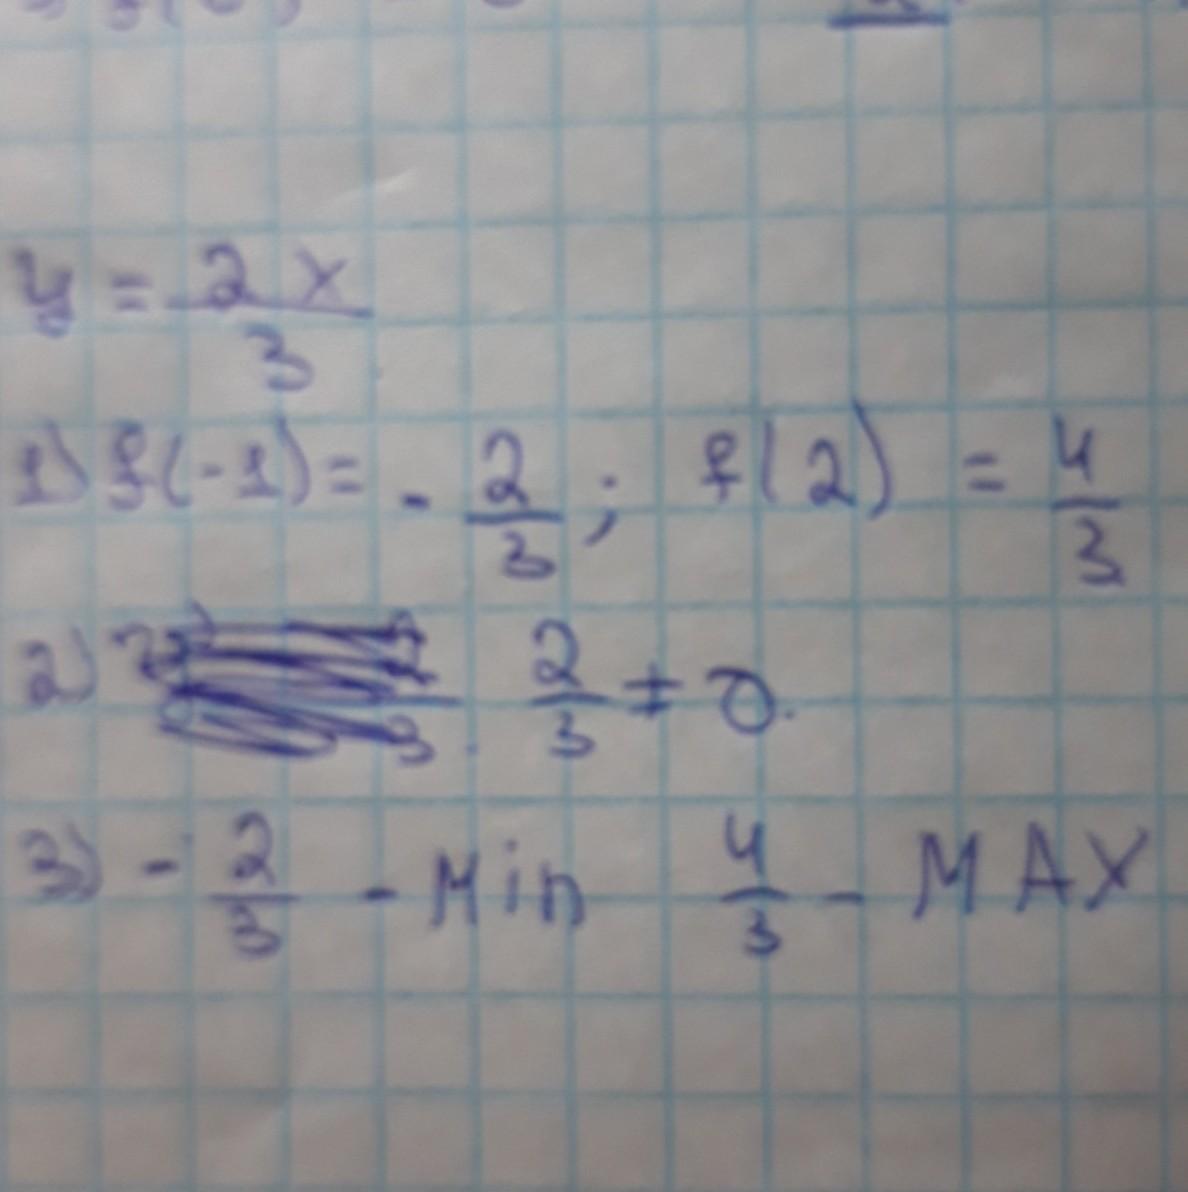 y = 2x/3
1) f(-1) = - 2/3 ; f(2) = 4/3
2) 2/3 ≠ 0.
3) - 2/3 - Min 4/3 - MAX